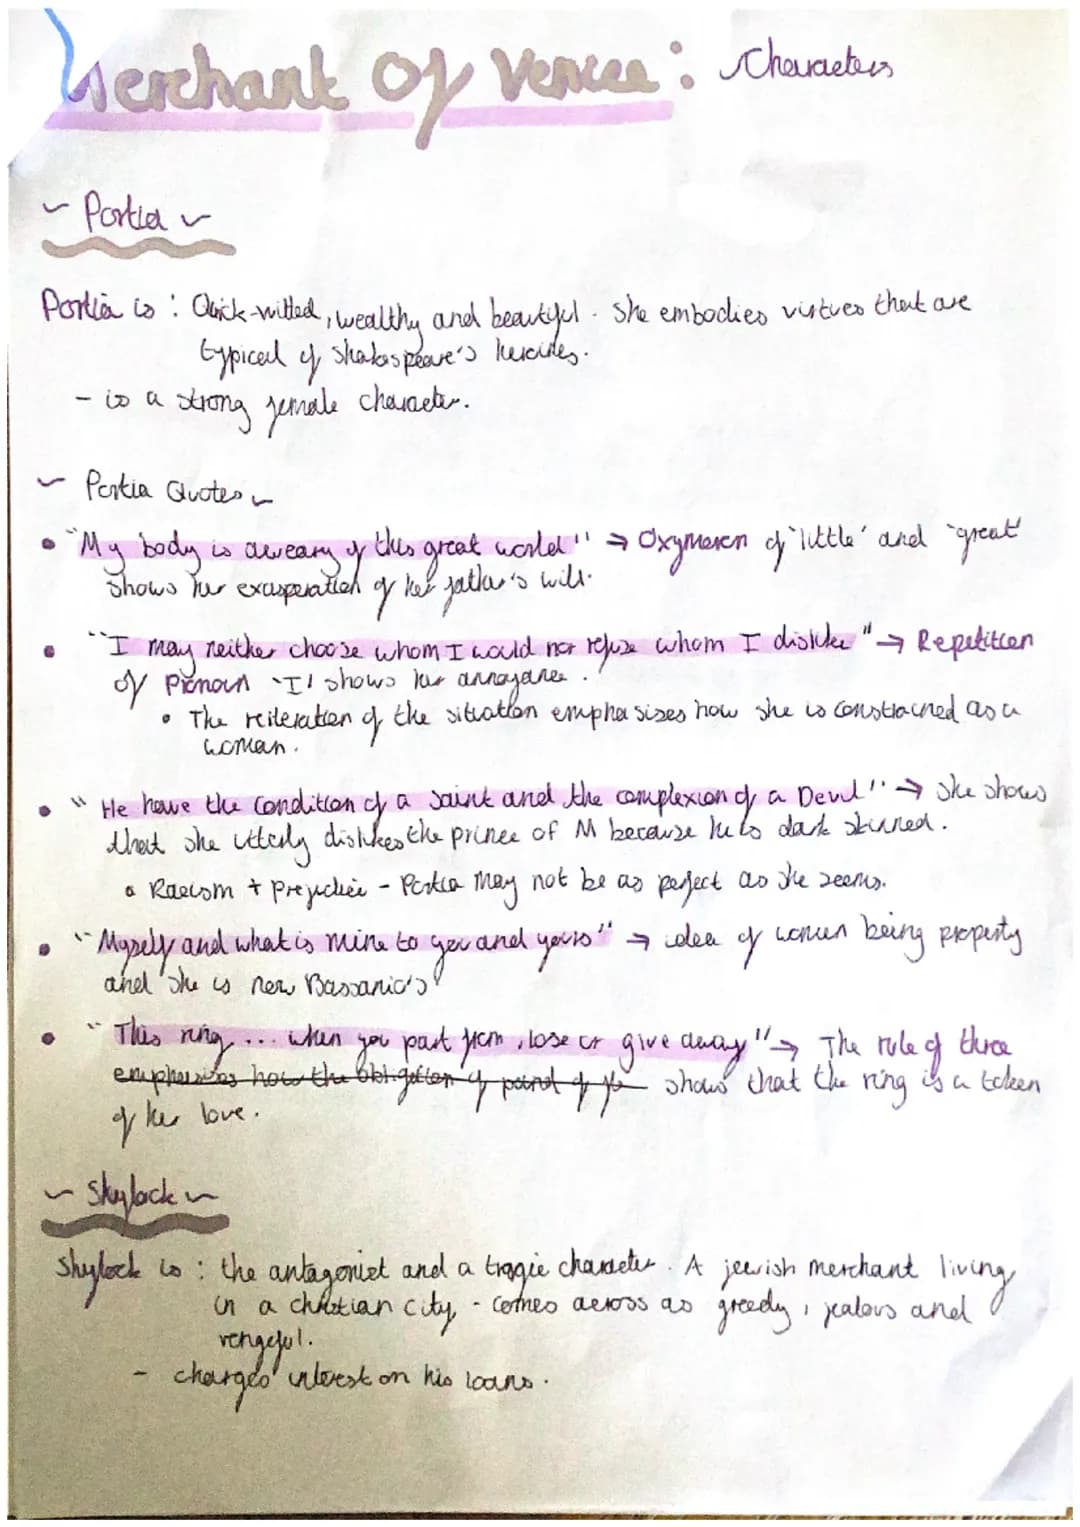 Merchant Of Venice: Characters
~ Portia ~
Portia is : Quick-witted, wealthy and beautiful. She embodies virtues that are
typical of Shakespeare's heroines.
- is a strong female character.
~ Portia Quotes ~
• "My body is aweary of this great world" → Oxymoron of 'little' and 'great'
shows her exasperation of her father's will.
• "I may neither choose whom I would nor refuse whom I dislike" → Repetition
of Pronoun 'I' shows her annoyance.
• The reiteration of the situation emphasises how she is constrained as a
woman.
• "He have the condition of a saint and the complexion of a Devil" → she shows
that she utterly dislikes the prince of M because he is dark skinned.
• Racism + Prejudice - Portia may not be as perfect as she seems.
• "Myself and what is mine to you and yours" → idea of women being property
and she is now Bassanio's
• "This ring... when you part from, lose or give away" → The rule of three
emphasises how the obligation of shows that the ring is a token
of her love.
~ Shylock ~
Shylock is : the antagonist and a tragic character. A jewish merchant living
in a christian city, - comes across as greedy, jealous and
vengeful.
- charges interest on his loans.